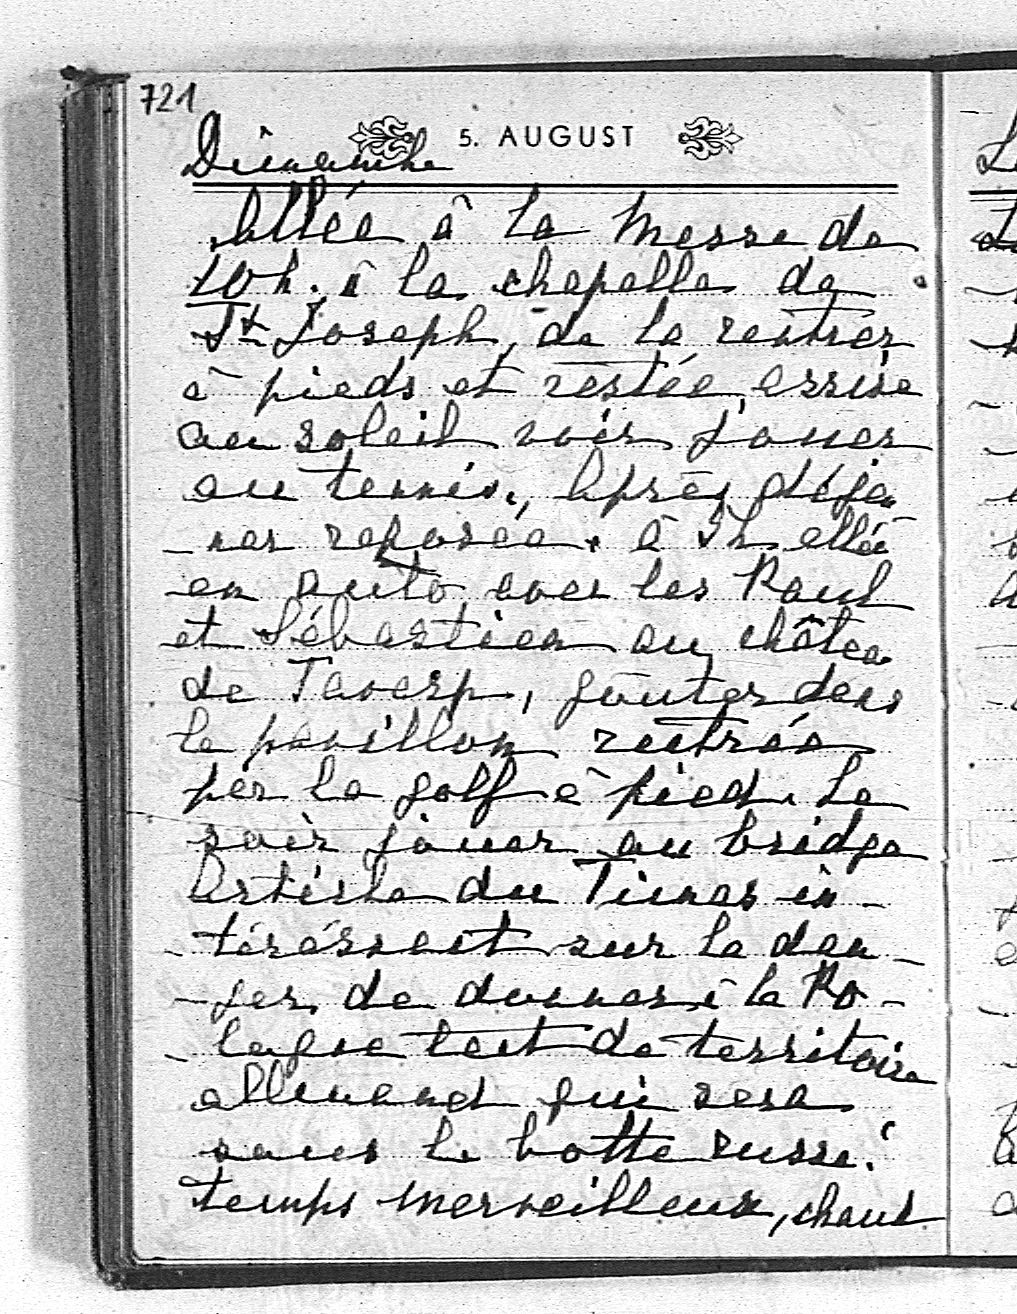 721
5. AUGUST
Dimanche
Allée à la Messe de
10 h. à la chapelle de
St Joseph, de la rentrer
à pieds et restée assise
au soleil voir jouer
au tennis, Après déjeu
ner reposée. à 3 h allée
en auto avec les Paul
et Sébastien au château
de Tavarp, goûter dans
le pavillon rentrée
par la golf à pied. Le
soir jouer au bridge
Article du Times in-
téréssant sur le dan-
ger de donner à la Po-
logne tant de territoire
allemand qui sera
sous la botte russe!
temps merveilleux, chaud